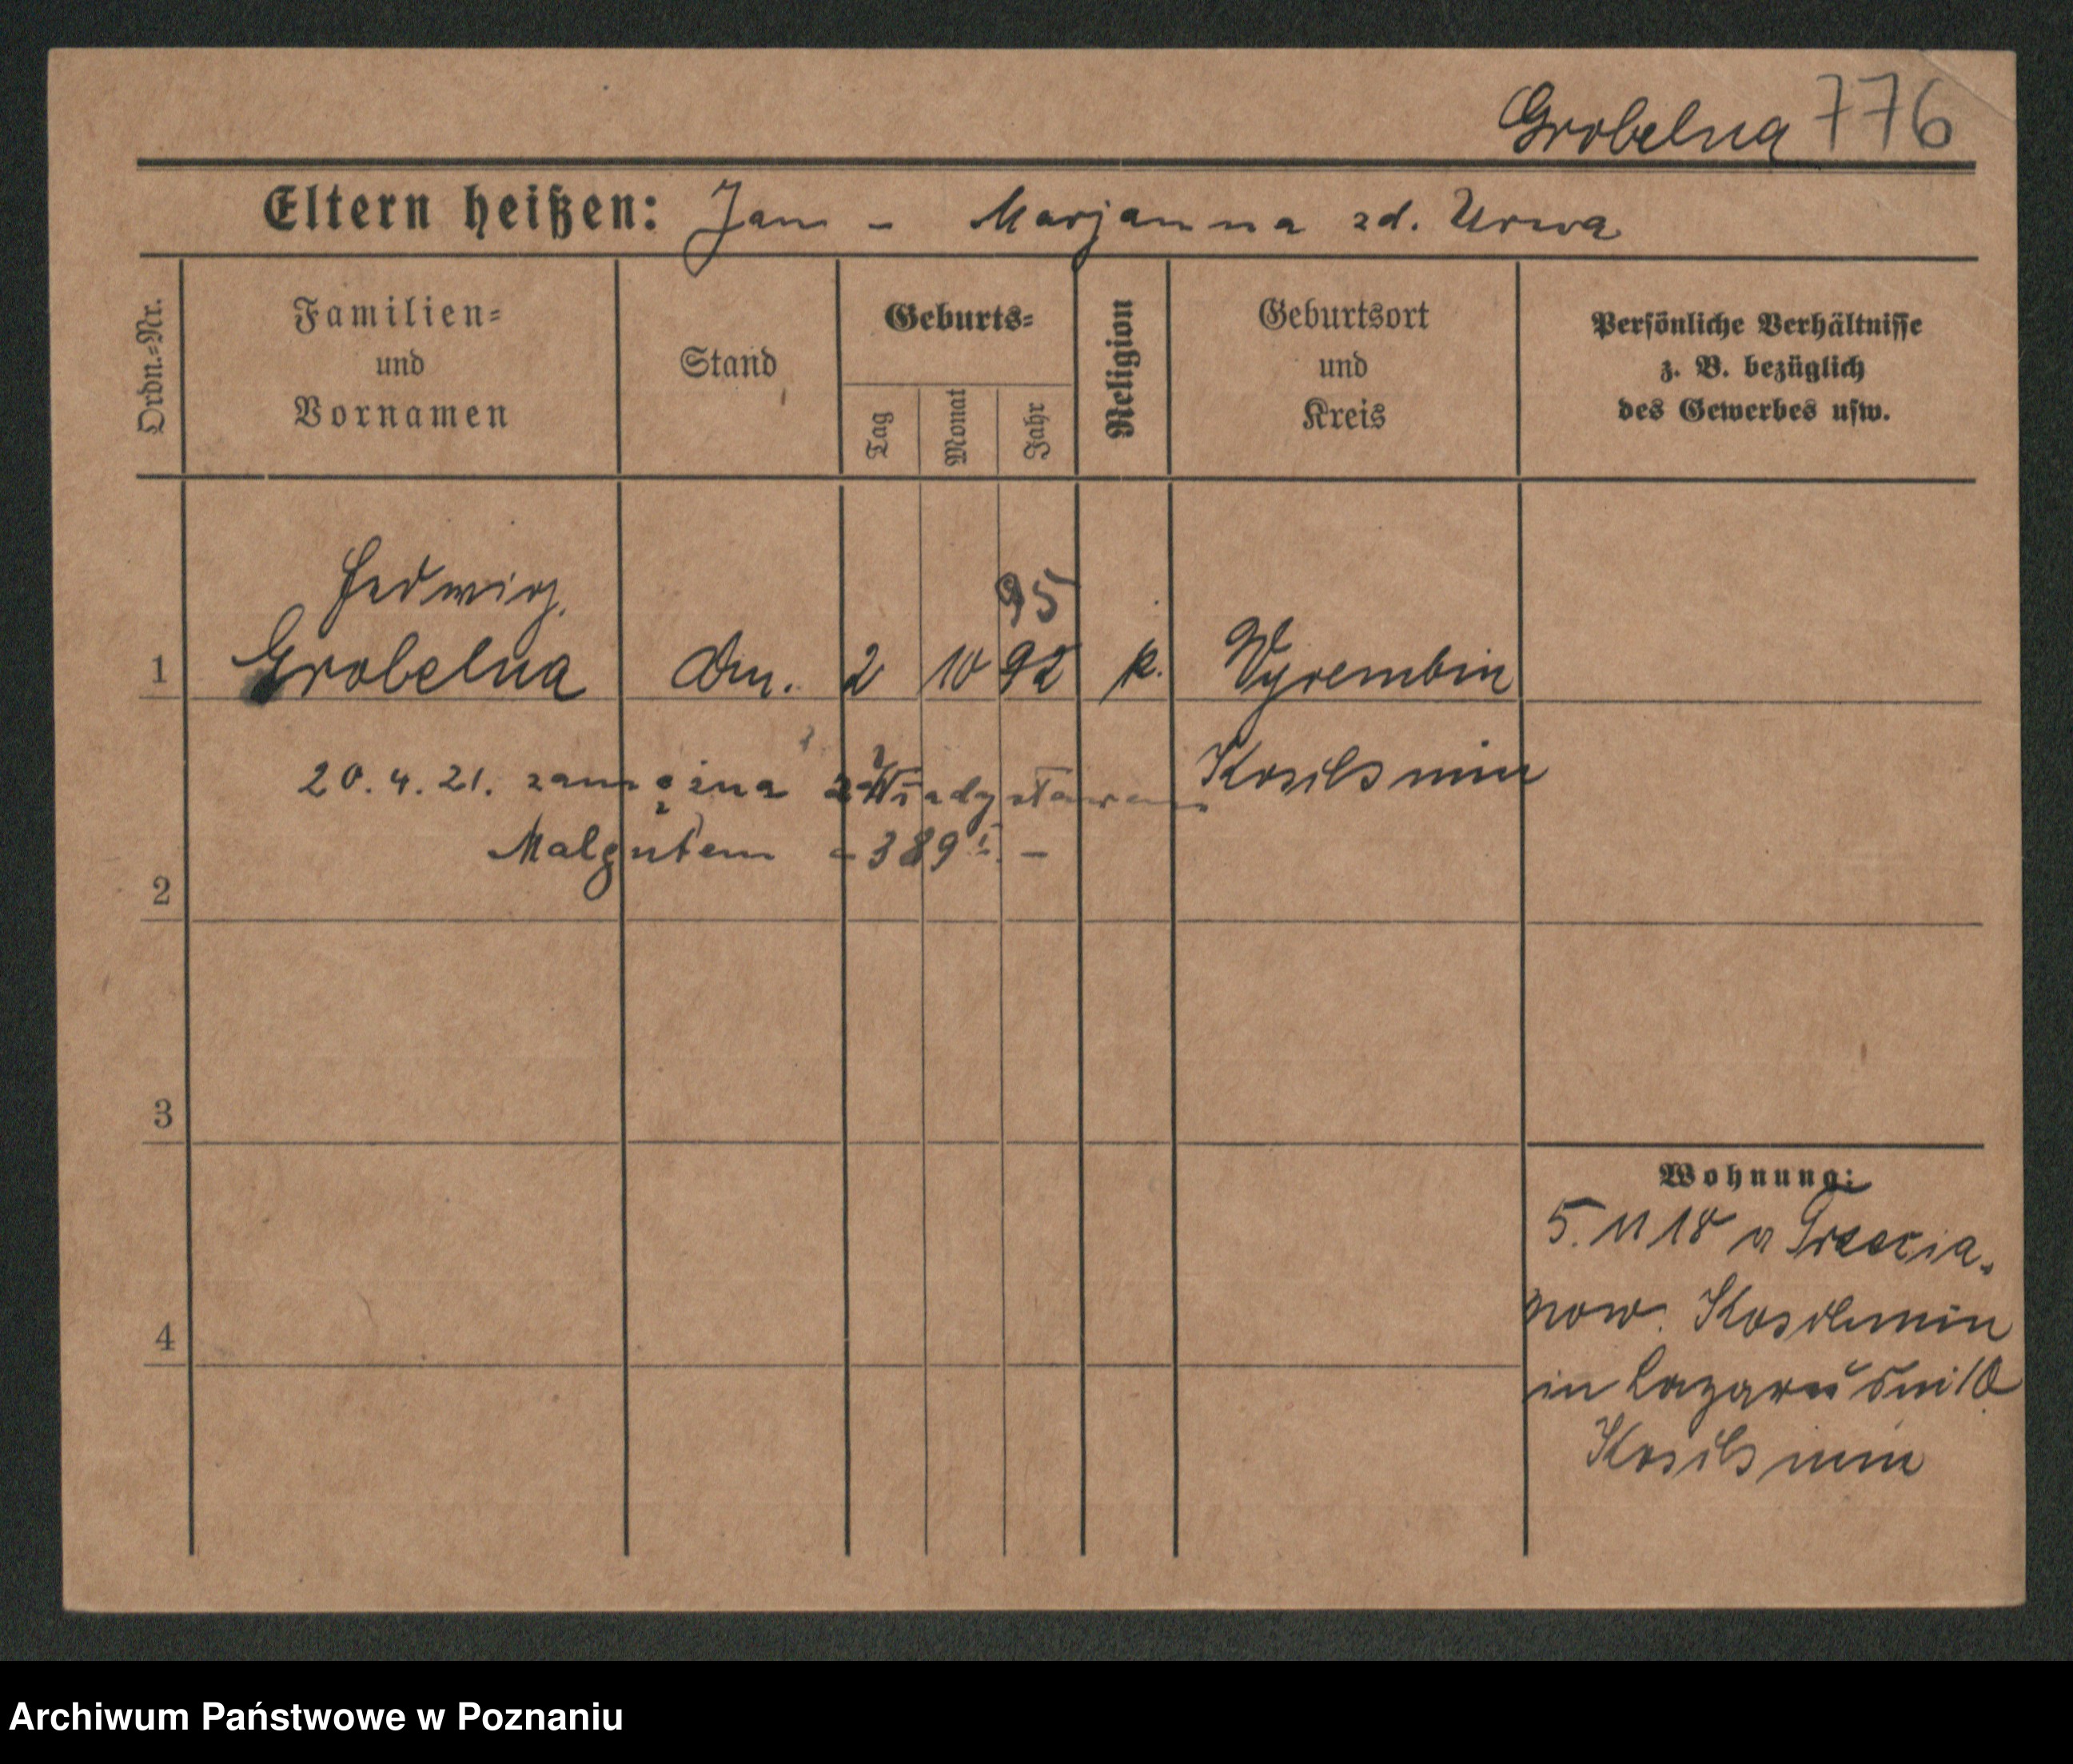 Grobelna 776
Eltern heißen: Jan - Marjanna zd. Urwa
Ordn.=Nr.
Familien=
und
Vornamen
Stand
Geburts=
Tag
Monat
Jahr
Religion
Geburtsort
und
Kreis
Persönliche Verhältnisse
z. B. bezüglich
des Gewerbes usw.
Hedwig
95
1 Grobelna 2 10 92 k. Wyrembin
20. 4. 21. zamężna z Władysławem
Malgutem - 389
2
3
Wohnung:
5. 11 18
now.
4
in Lazarus
Archiwum Państwowe w Poznaniu